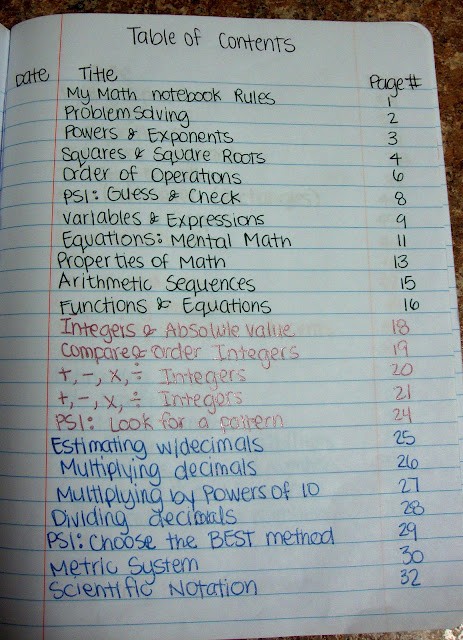 Table of Contents
Date Title Page#
My Math notebook Rules 1
Problem Solving 2
Powers & Exponents 3
Squares & Square Roots 4
Order of Operations 6
PSI: Guess & Check 8
Variables & Expressions 9
Equations: Mental Math 11
Properties of Math 13
Arithmetic Sequences 15
Functions & Equations 16
Integers & Absolute Value 18
Compare & Order Integers 19
+, -, x, ÷ Integers 20
+, -, x, ÷ Integers 21
PSI: Look for a pattern 24
Estimating w/decimals 25
Multiplying decimals 26
Multiplying by Powers of 10 27
Dividing decimals 28
PSI: Choose the BEST method 29
Metric System 30
Scientific Notation 32